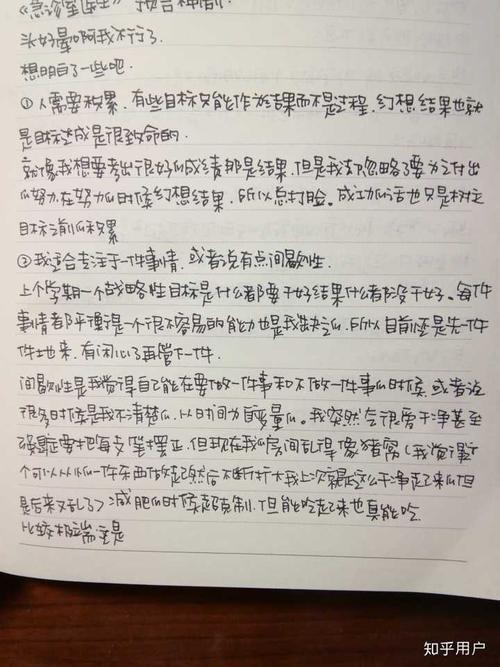 《急诊室医生》
头好晕啊我不行了.
想明白了一些吧.
①人需要积累,有些目标只能作为结果而不是过程,幻想结果也就
是目标达成是很致命的.
就像我想要考出很好的成绩那是结果,但是我却忽略了要为之付出
的努力,在努力的时候幻想结果,所以总打脸。成功的话也只是对于
目标之前的积累
②我适合专注于一件事情,或者说有点间歇性.
上个学期一个战略性目标是什么都要干好结果什么都没干好。每件
事情都平衡是一个很不容易的能力也是我缺乏的,所以目前还是先一件
件地来,有闲心了再管下一件.
间歇性是我觉得自己能在要做一件事和不做一件事的时候,或者说
很多时候是我不清楚的,以时间为度量的。我突然会很爱干净甚至
强迫要把每支笔摆正,但现在我的房间乱得像猪窝(我觉得这
个可以从从一件东西做起然后不断扩大我上次就是这么干净起来的但
是后来又乱了)减肥的时候超克制,但能吃起来也真能吃.
比较极端主是
知乎用户